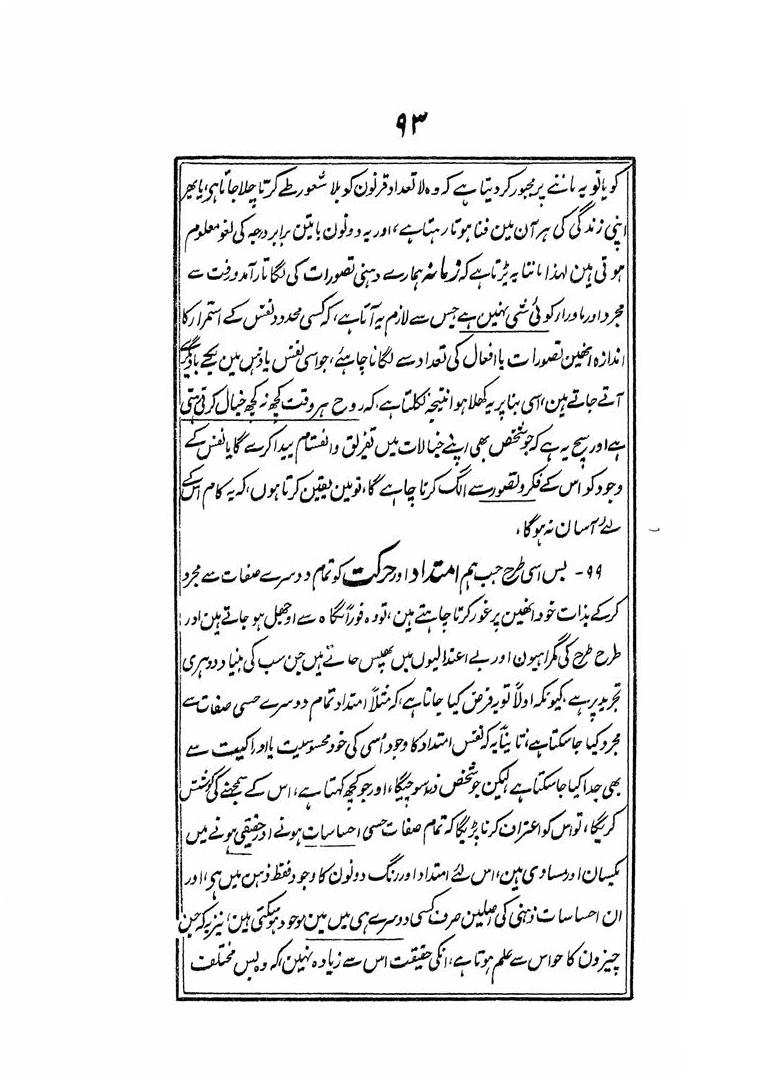 ۹۳
کو یا تو یہ ماننے پر مجبور کردیتا ہے کہ وہ لا تعداد قرنون کو بلا شعور طے کرتا چلا جاتا ہی، یا پھر
اپنی زندگی کی ہر آن مین فنا ہوتا رہتا ہے، اور یہ دونون باتین برابر درجہ کی لغو معلوم
ہوتی ہین لہذا ماننا یہ پڑتا ہے کہ زمانہ ہمارے ذہنی تصورات کی لگاتار آمدورفت سے
مجرد اور ماوراء کوئی شی نہین ہے جس سے لازم یہ آتا ہے، کہ کسی محدود نفس کے استمرار کا
اندازہ انھین تصورات یا افعال کی تعداد سے لگانا چاہئے، جو اسی نفس یا ذہن مین یکے بادیگرے
آتے جاتے ہین، اسی بنا پر یہ کھلا ہوا نتیجہ نکلتا ہے، کہ روح ہر وقت کچھ نہ کچھ خیال کرتی رہتی
ہے اور سچ یہ ہے کہ جو شخص بھی اپنے خیالات میں تفریق و انقسام پیدا کرے گا یا نفس کے
وجود کو اس کے فکر و تصور سے الگ کرنا چاہے گا، تو مین یقین کرتا ہوں، کہ یہ کام اس کے
لئے آسان نہ ہوگا،
۹۹- بس اسی طرح جب ہم امتداد اور حرکت کو تمام دوسرے صفات سے مجرد
کرکے بذات خود انھین پر غور کرنا چاہتے ہین، تو وہ فوراً نگاہ سے اوجھل ہو جاتے ہین اور
طرح طرح کی گمراہیون اور بے اعتدالیوں میں پھنس جاتے ہیں جن سب کی بنیاد دوہری
تجرید پر ہے، کیونکہ اولاً تو یہ فرض کیا جاتا ہے، کہ مثلاً امتداد تمام دوسرے حسی صفات سے
مجرد کیا جاسکتا ہے، ثانیاً یہ کہ نفس امتداد کا وجود اُسی کی خود محسوسیت یا ادراکیت سے
بھی جدا کیا جاسکتا ہے لیکن جو شخص ذرا سوچیگا، اور جو کچھ کہتا ہے، اس کے سمجھنے کی کوشش
کریگا، تو اس کو اعتراف کرنا پڑیگا کہ تمام صفات حسی احساسات ہونے اور حقیقی ہونے میں
یکسان اور مساوی ہین، اس لئے امتداد اور رنگ دونون کا وجود فقط ذہن میں ہی، اور
ان احساسات ذہنی کی اصلین صرف کسی دوسرے ہی میں مین موجود ہوسکتی ہین، نیز یہ کہ جن
چیزون کا حواس سے علم ہوتا ہے، انکی حقیقت اس سے زیادہ نہین، کہ وہ بس مختلف